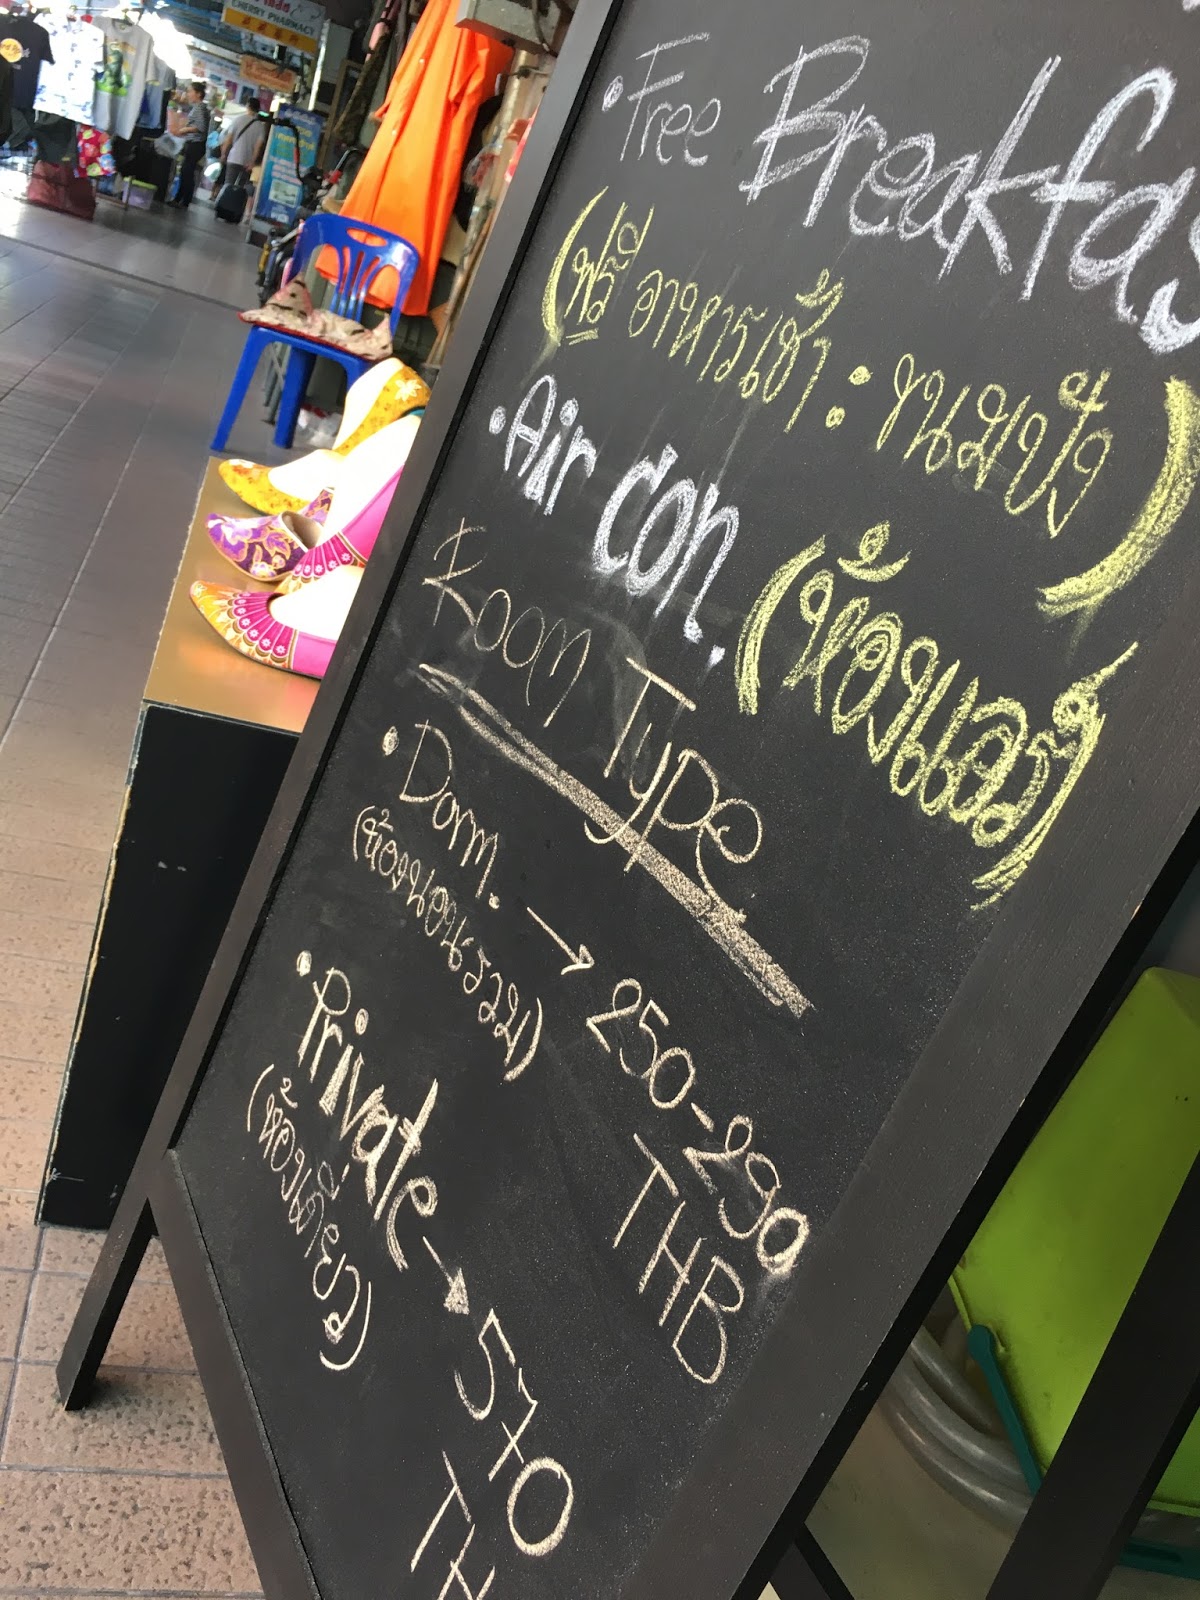 CHERRY PHARMACY
• Free Breakfas
(ฟรี อาหารเช้า : ขนมปัง)
• Air con. (ห้องแอร์)
Room Type
• Dorm. → 250-290 THB
(ห้องนอนรวม)
• Private → 570 TH
(ห้องเดี่ยว)